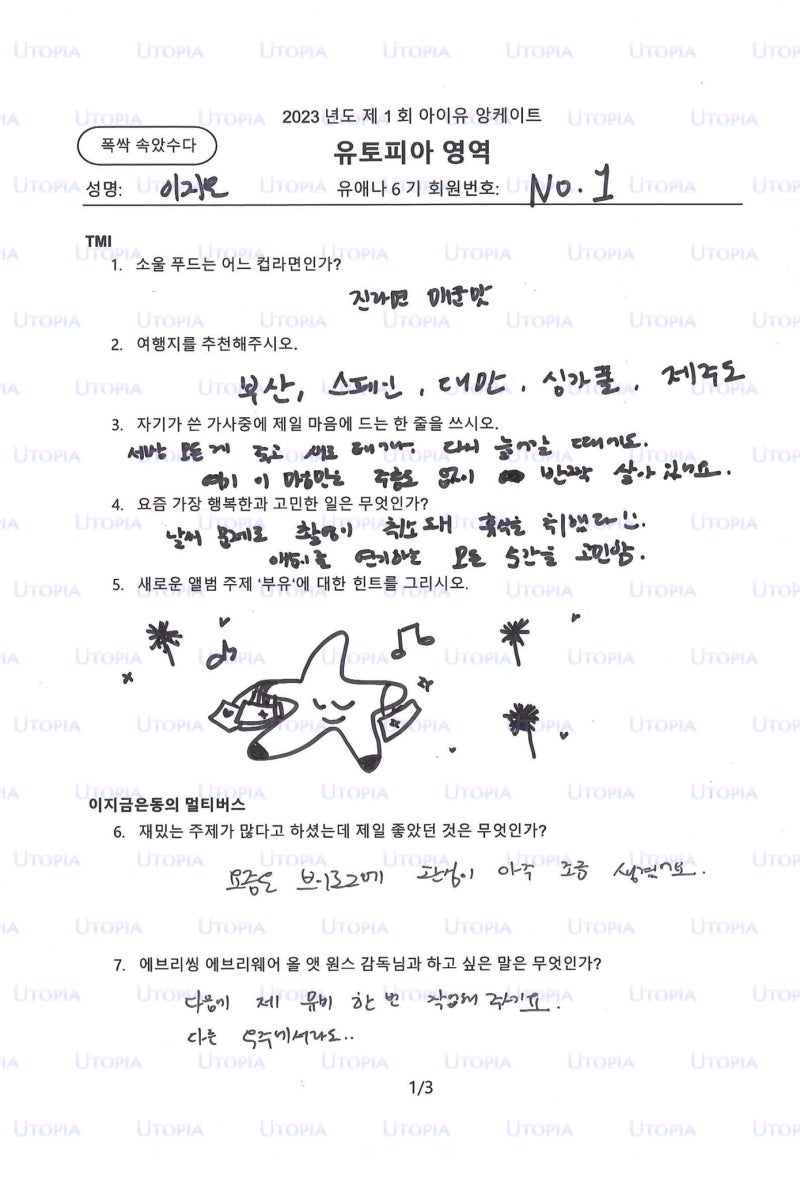 2023년도 제 1 회 아이유 앙케이트
폭싹 속았수다
유토피아 영역
성명: 이지은 유애나 6 기 회원번호: No. 1
TMI
1. 소울 푸드는 어느 컵라면인가?
진라면 매운맛
2. 여행지를 추천해주시오.
부산, 스페인, 대만, 싱가폴, 제주도
3. 자기가 쓴 가사중에 제일 마음에 드는 한 줄을 쓰시오.
세상 모든 게 죽고 새로 태어나 다시 늙어갈 때에도.
여기 이 마음만은 주름도 없이 반짝 살아 있어요.
4. 요즘 가장 행복한과 고민한 일은 무엇인가?
날씨 문제로 촬영이 취소돼 휴식을 취했다는.
애순이를 연기하는 모든 순간을 고민함.
5. 새로운 앨범 주제 '부유'에 대한 힌트를 그리시오.
이지금은동의 멀티버스
6. 재밌는 주제가 많다고 하셨는데 제일 좋았던 것은 무엇인가?
요즘은 브이로그에 관심이 아주 조금 생겼어요.
7. 에브리씽 에브리웨어 올 앳 원스 감독님과 하고 싶은 말은 무엇인가?
다음에 제 뮤비 한 번 작업해 주세요.
다른 우주에서라도..
1/3
UTOPIA